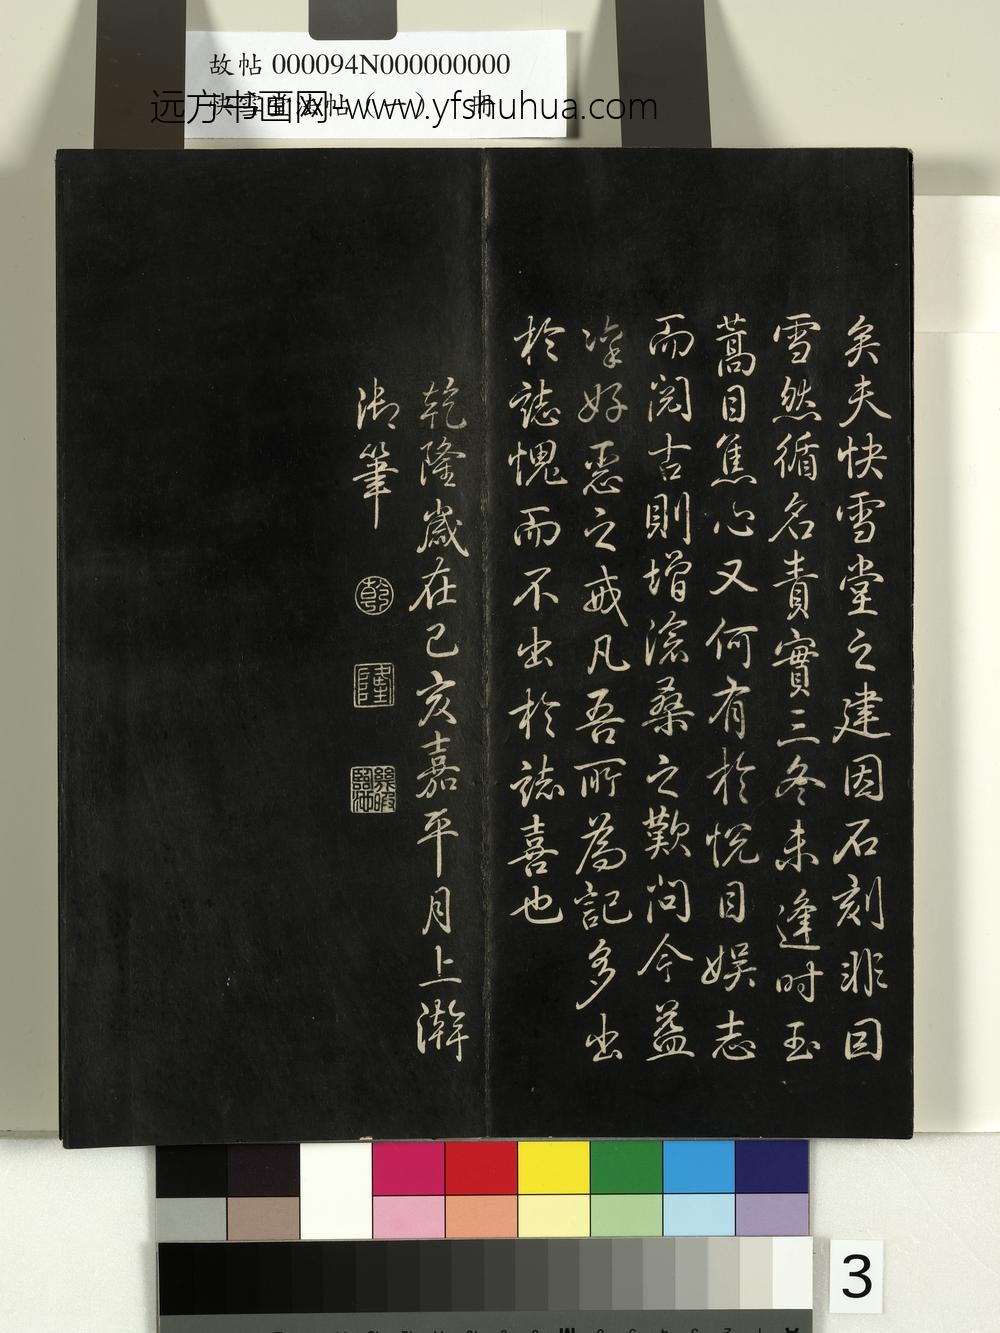 故帖 000094N000000000
快雪堂法帖（一） 冊
远方书画网-www.yfshuhua.com
矣夫快雪堂之建因石刻非因
雪然循名責實三冬未逢时玉
蒿目焦心又何有於悅目娱志
而阅古則增滄桑之歎问今益
深好惡之戒凡吾所為記多出
於誌愧而不出於誌喜也
乾隆歲在己亥嘉平月上澣
御筆
乾
隆
幾暇
臨池
3